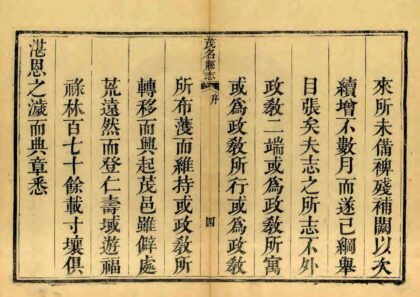 來所未備裨殘補闕以次
續增不數月而遂已綱舉
目張矣夫志之所志不外
政敎二端或爲政敎所寓
或爲政敎所行或爲政敎
茂名縣志
序
四
所布濩而維持或政敎所
轉移而興起茂邑雖僻處
荒遠然而登仁壽域遊福
祿林百七十餘載寸壤俱
湛恩之濊而典章悉